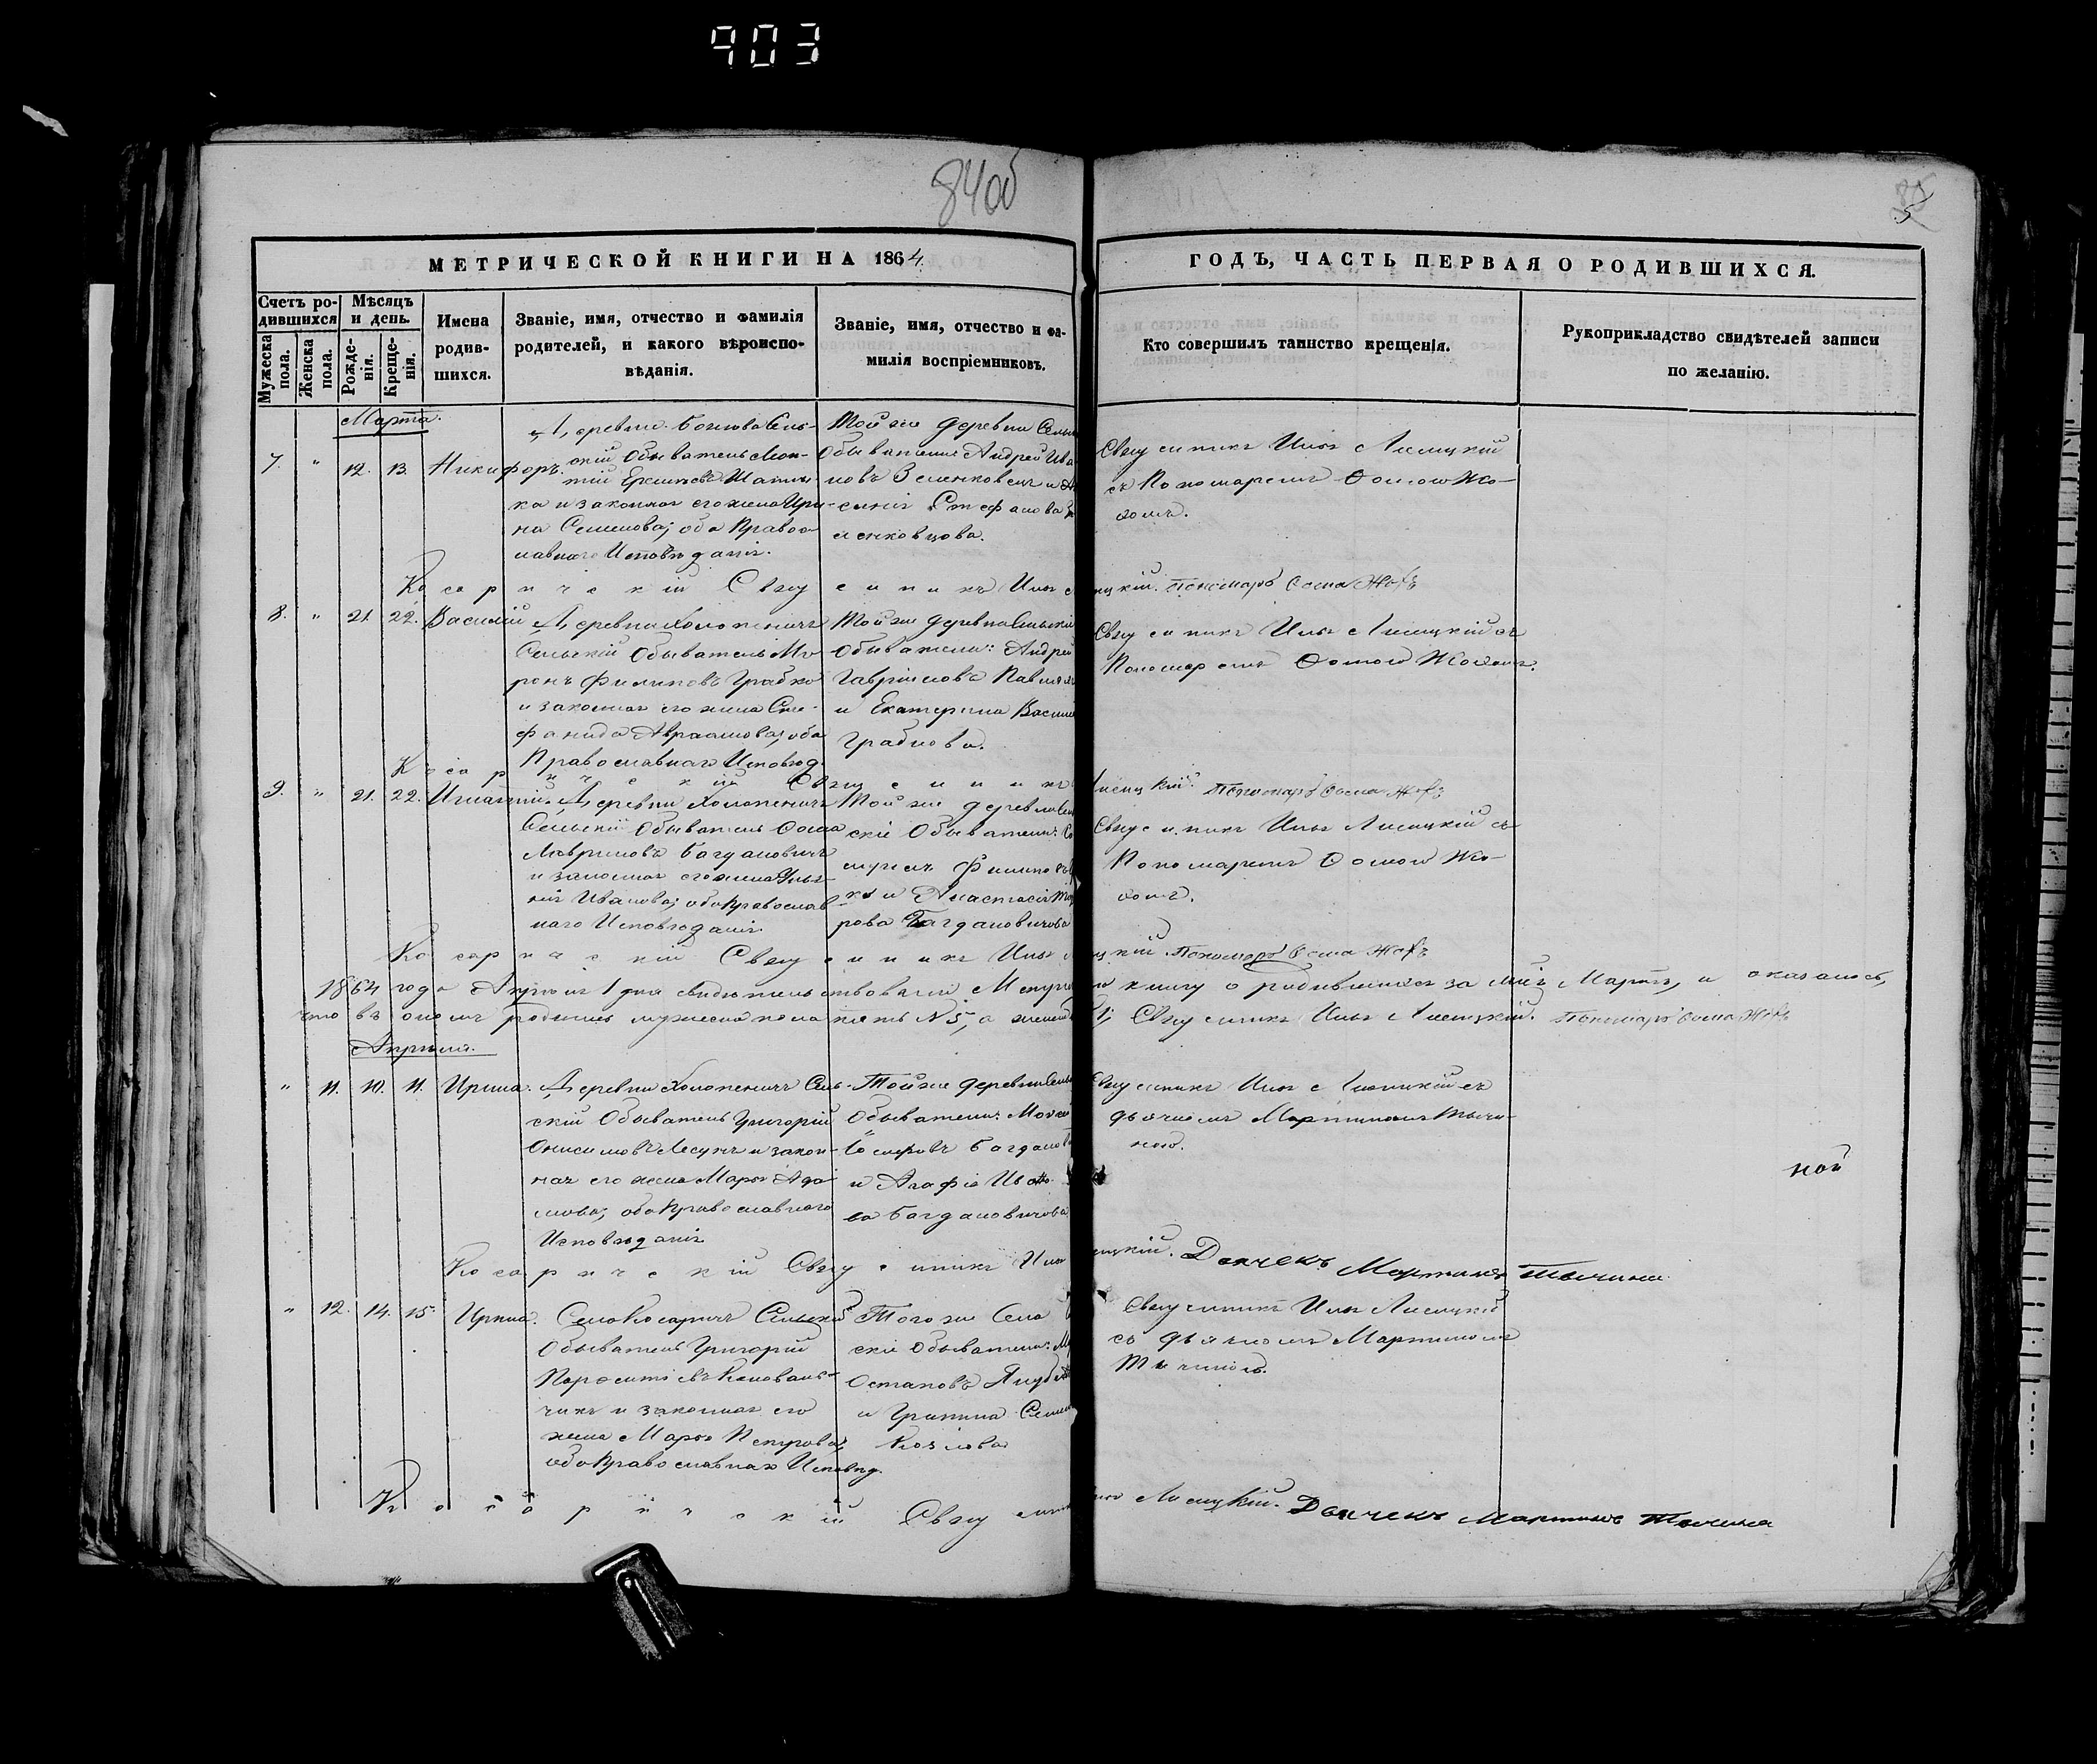 903
84 об
85
МЕТРИЧЕСКОЙ КНИГИ НА 1864
ГОДЪ, ЧАСТЬ ПЕРВАЯ О РОДИВШИХСЯ.
Счетъ ро-
дившихся
Мужеска
пола.
Женска
пола.
Мѣсяцъ
и день.
Рожде-
нія.
Креще-
нія.
Имена
родив-
шихся.
Званіе, имя, отчество и фамилія
родителей, и какого вѣроиспо-
вѣданія.
Званіе, имя, отчество и фа-
милія воспріемниковъ.
Кто совершилъ таинство крещенія.
Рукоприкладство свидѣтелей записи
по желанію.
Марта.
7. " 12. 13. Никифоръ.
Деревни Сель-
скій Обыватель
ка и законная его жена Ири-
на Семенова; оба Правос
лавнаго Исповѣданія.
Той же деревни Сель
Обыватели Андрей Ива
новъ Зеленковецъ и
Стефанова
ленковцова.
Священникъ Илья Лисицкій
съ Пономаремъ Ѳомою Жо-
Косаричскій Священникъ Илья
цкій. Пономарь Ѳома
8. " 21. 22. Василій
Деревни Холопеничъ
Сельскій Обыватель Ми
ронъ Филиповъ Грабко
и законная его жена Сте-
фанида Авраамова; оба
Православнаго Исповѣд.
Той же деревни Сельскіе
Обыватели: Андрей
Гавріиловъ
и Екатерина Васил
Грабкова.
Священникъ Илья Лисицкій съ
Пономаремъ Ѳомою
Косаричскій Священникъ
Лисицкій. Пономарь Ѳома
9. " 21. 22. Игнатій.
Деревни Холопеничъ
Сельскій Обыватель Ѳома
Лавриновъ Багдановичъ
и законная его жена
Иванова; оба Православ-
наго Исповѣданія.
Той же деревни Сель
скіе Обыватели:
Филиповъ
и Анастасія
рова Багдановичова
Священникъ Илья Лисицкій съ
Пономаремъ Ѳомою Жо-
Косаричскій Священникъ Илья
цкій. Пономарь Ѳома
1864 года Апрѣля 1 дня свидѣтельствовали Метриче
ю книгу о родившихся за м-цъ Мартъ, и оказалось,
что въ ономъ родилось мужеска пола пять №5, а женска
Священникъ Илья Лисицкій. Пономарь Ѳома
Апрѣля.
" 11. 10. 11. Ирина.
Деревни Холопеничъ Сель-
скій Обыватель Григорій
Онисимовъ и закон-
ная его жена Марья Ада
мова; оба Православнаго
Исповѣданія
Той же деревни Сель
Обыватели:
Іосифовъ Багданов
и Агафія Ивано-
ва Багдановичова
Священникъ Илья Лисицкій съ
дьячкомъ Мартиномъ Тычи-
ною.
ной
Косаричскій Священникъ Илья
ицкій. Дьячекъ Мартинъ Тычина
" 12. 14. 15. Ирина.
Села Косаричъ Сельскій
Обыватель Григорій
и законная его
жена Марья Петрова;
оба Православнаго Исповѣд.
Того же Села
скіе Обыватели:
Остаповъ
и Семен
Козлова
Священникъ Илья Лисицкій
съ дьячкомъ Мартиномъ
Тычиною.
Косаричскій Священ
Лисицкій. Дьячекъ Мартинъ Тычина